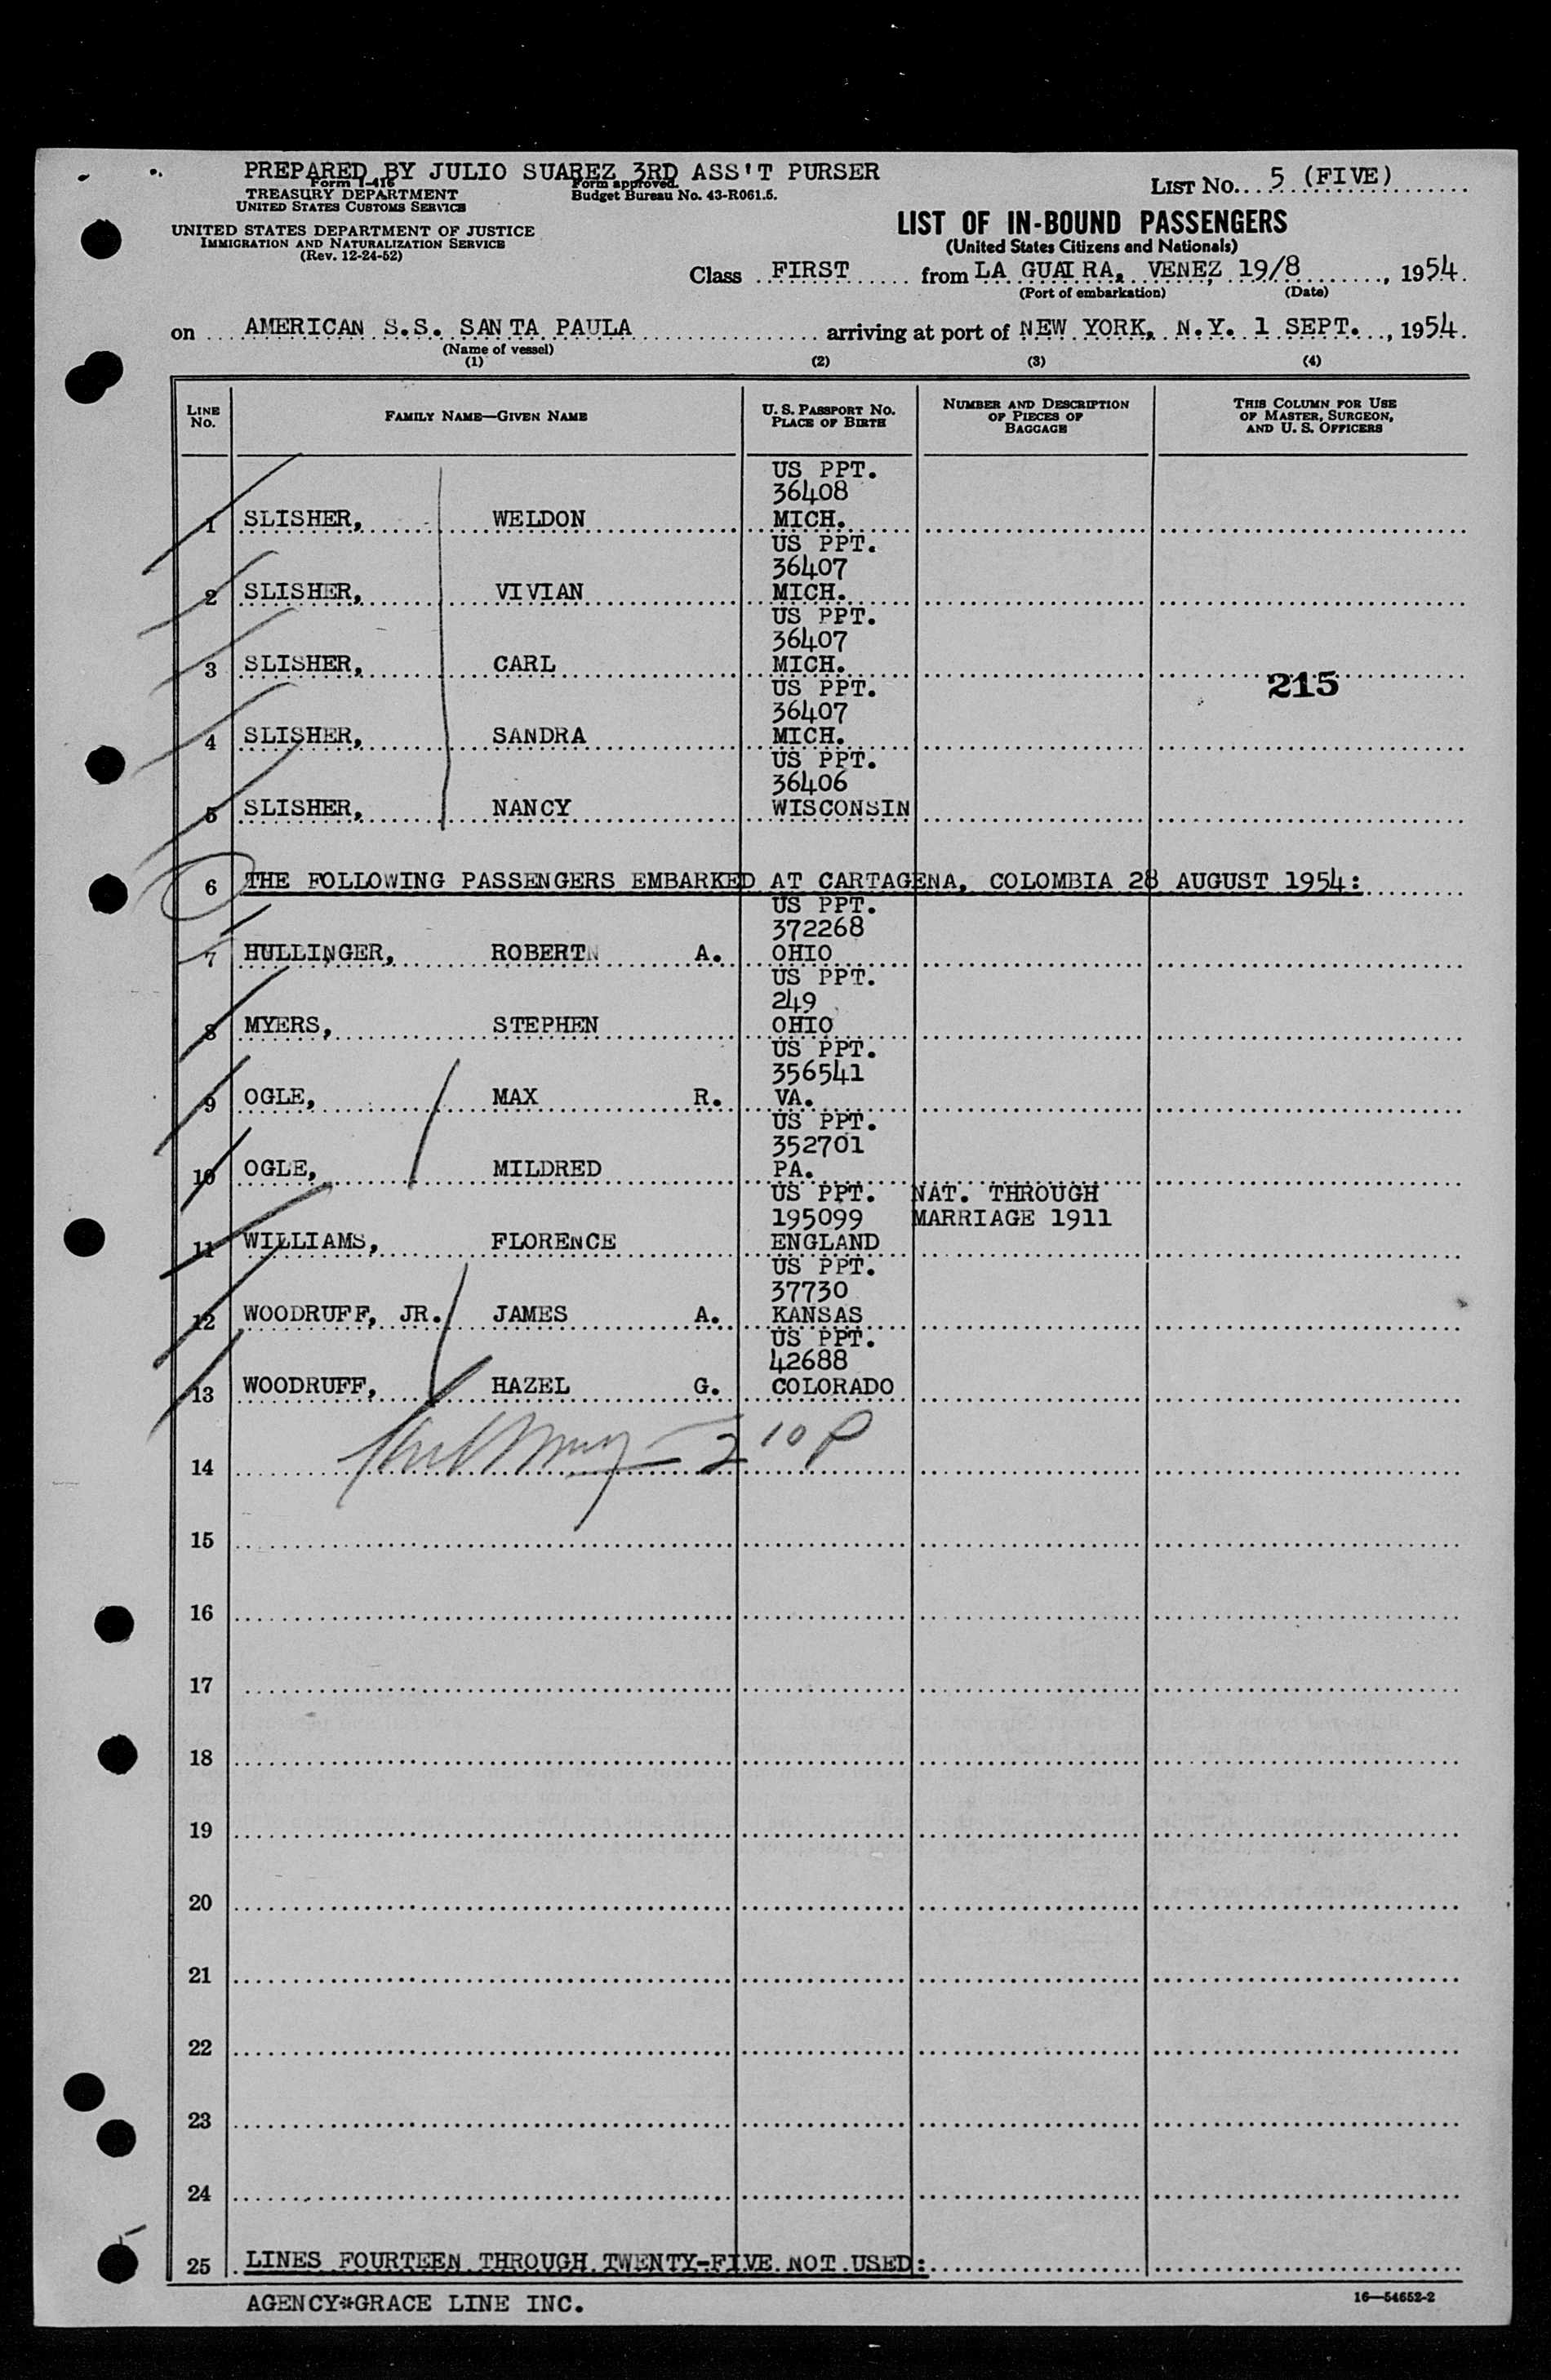 PREPARED BY JULIO SUAREZ 3RD ASS'T PURSER
Form I-416
TREASURY DEPARTMENT
UNITED STATES CUSTOMS SERVICE
Form approved.
Budget Bureau No. 43-R061.5.
LIST NO. 5 (FIVE)
UNITED STATES DEPARTMENT OF JUSTICE
IMMIGRATION AND NATURALIZATION SERVICE
(Rev. 12-24-52)
LIST OF IN-BOUND PASSENGERS
(United States Citizens and Nationals)
Class FIRST from LA GUAIRA, VENEZ 19/8, 1954.
(Port of embarkation) (Date)
on AMERICAN S.S. SANTA PAULA arriving at port of NEW YORK, N.Y. 1 SEPT., 1954.
(Name of vessel)
(1) (2) (3) (4)
LINE NO.
FAMILY NAME—GIVEN NAME
U. S. PASSPORT NO.
PLACE OF BIRTH
NUMBER AND DESCRIPTION
OF PIECES OF
BAGGAGE
THIS COLUMN FOR USE
OF MASTER, SURGEON,
AND U. S. OFFICERS
US PPT.
36408
1 SLISHER, WELDON MICH.
US PPT.
36407
2 SLISHER, VIVIAN MICH.
US PPT.
36407
3 SLISHER, CARL MICH.
215
US PPT.
36407
4 SLISHER, SANDRA MICH.
US PPT.
36406
5 SLISHER, NANCY WISCONSIN
6 THE FOLLOWING PASSENGERS EMBARKED AT CARTAGENA, COLOMBIA 28 AUGUST 1954:
US PPT.
372268
7 HULLINGER, ROBERT A. OHIO
US PPT.
249
8 MYERS, STEPHEN OHIO
US PPT.
356541
9 OGLE, MAX R. VA.
US PPT.
352701
10 OGLE, MILDRED PA.
US PPT. NAT. THROUGH
195099 MARRIAGE 1911
11 WILLIAMS, FLORENCE ENGLAND
US PPT.
37730
12 WOODRUFF, JR. JAMES A. KANSAS
US PPT.
42688
13 WOODRUFF, HAZEL G. COLORADO
2 10 P
14
15
16
17
18
19
20
21
22
23
24
25 LINES FOURTEEN THROUGH TWENTY-FIVE NOT USED:
AGENCY*GRACE LINE INC.
16—54652-2